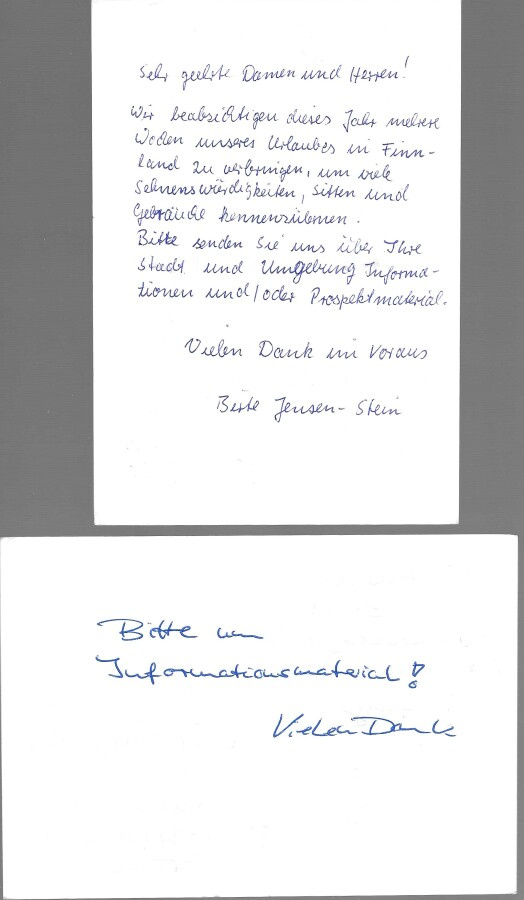 Sehr geehrte Damen und Herren!
Wir beabsichtigen dieses Jahr mehrere
Wochen unseres Urlaubes in Finn-
land zu verbringen, um viele
Sehenswürdigkeiten, Sitten und
Gebräuche kennenzulernen.
Bitte senden Sie uns über Ihre
Stadt und Umgebung Informa-
tionen und/oder Prospektmaterial.
Vielen Dank im Voraus
Birte Jensen-Stein
Bitte um
Informationsmaterial!
Vielen Dank